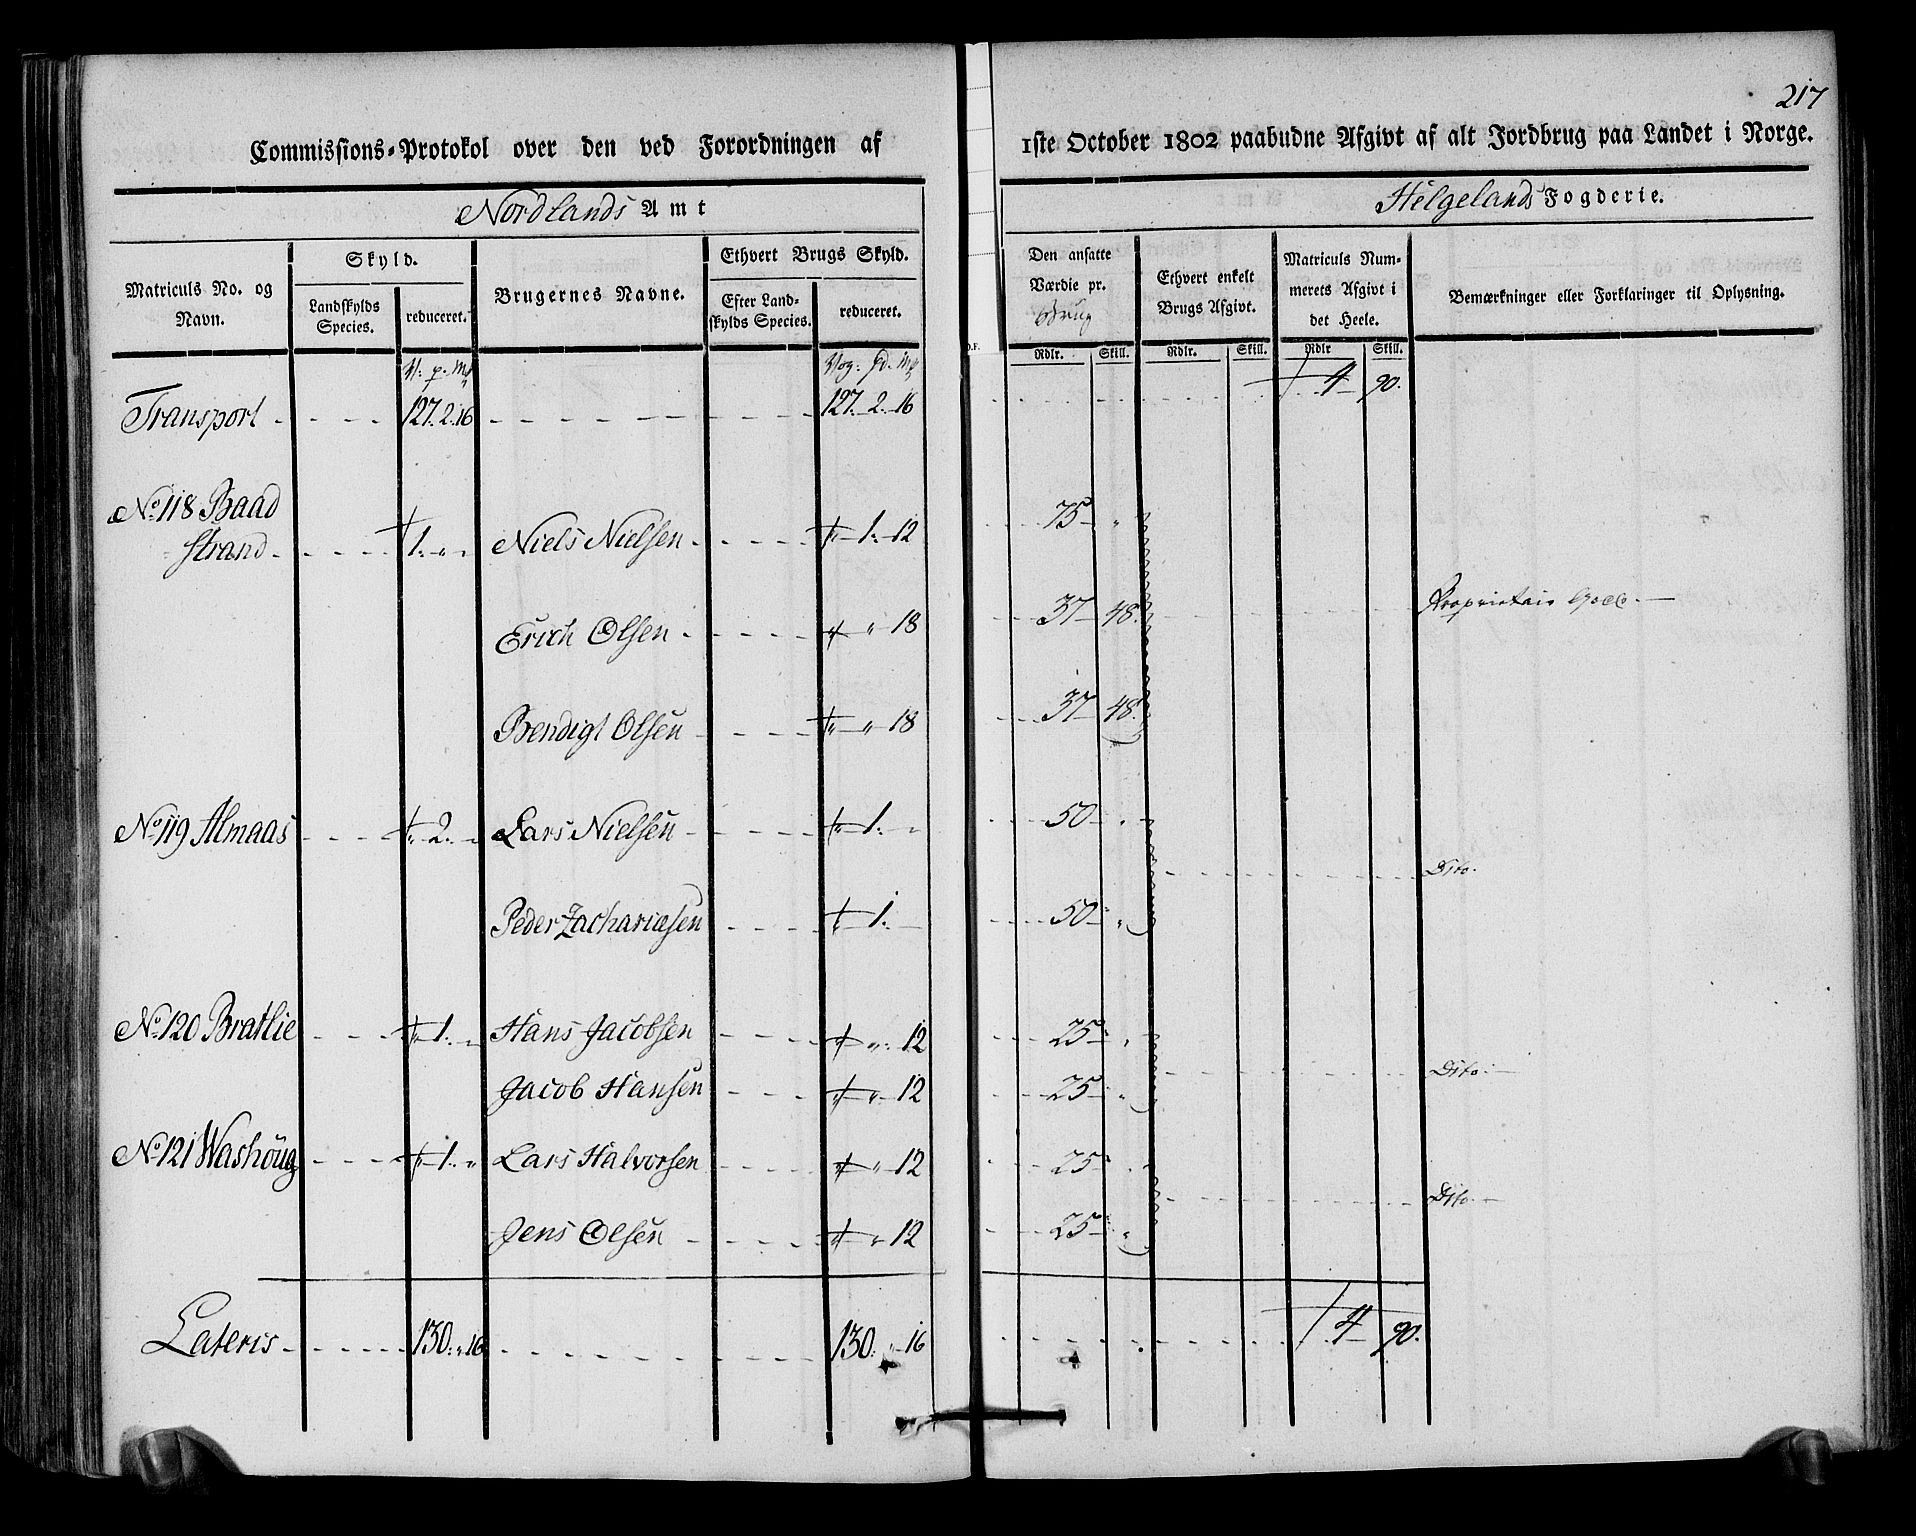 217
Commissions-Protokol over den ved Forordningen af 1ste October 1802 paabudne Afgivt af alt Jordbrug paa Landet i Norge.
Nordlands Amt Helgelands Fogderie.
Matriculs No. og Navn.
Skyld.
Landskylds Species.
reduceret.
Brugernes Navne.
Ethvert Brugs Skyld.
Efter Landskylds Species.
reduceret.
Den ansatte Værdie pr. Brug
Rdlr. Skill.
Ethvert enkelt Brugs Afgivt.
Rdlr. Skill.
Matriculs Nummerets Afgivt i det Heele.
Rdlr Skill.
Bemærkninger eller Forklaringer til Oplysning.
Transport 127. 2. 16 127. 2. 16 4 90.
No 118 Baad
strand 1. „ Niels Nielsen 1. 12 75 „
Erich Olsen „ „ 18 37 48. Proprietair Gods.
Bendigt Olsen „ „ 18 37 48.
No 119 Almaas „ 2. Lars Nielsen „ 1. „ 50 „
Dito.
Peder Zachariasen 1. 50 „
No 120 Bratlie „ 1. „ Hans Jacobsen „ „ 12 25 „
Dito.
Jacob Hansen „ „ 12 25 „
No 121 Washoug „ 1. „ Lars Halvorsen „ „ 12 25
Dito.
Jens Olsen „ „ 12 25 „
Lateris 130. „ 16 130. „ 16 4 90.